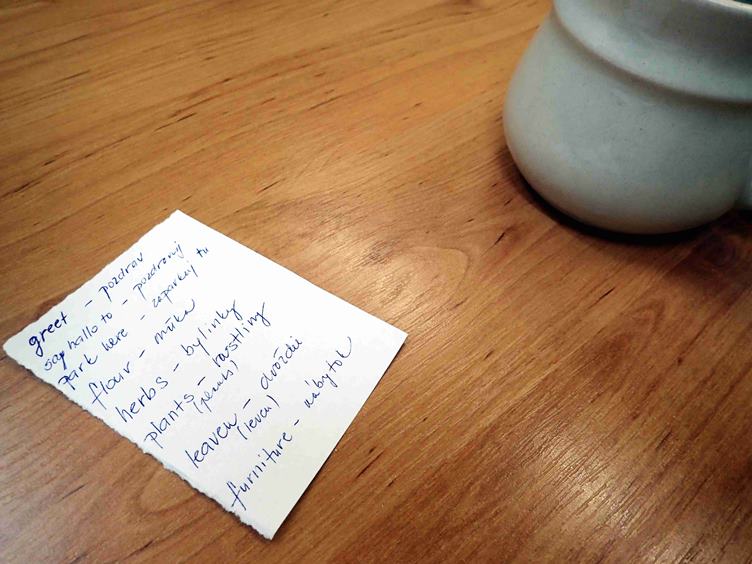 greet - pozdrav
say hallo to - pozdravuj
park here - zaparkuj tu
flour - múka
herbs - bylinky
plants - rastliny
(plents)
leaven - droždie
(leven)
furniture - nábytok